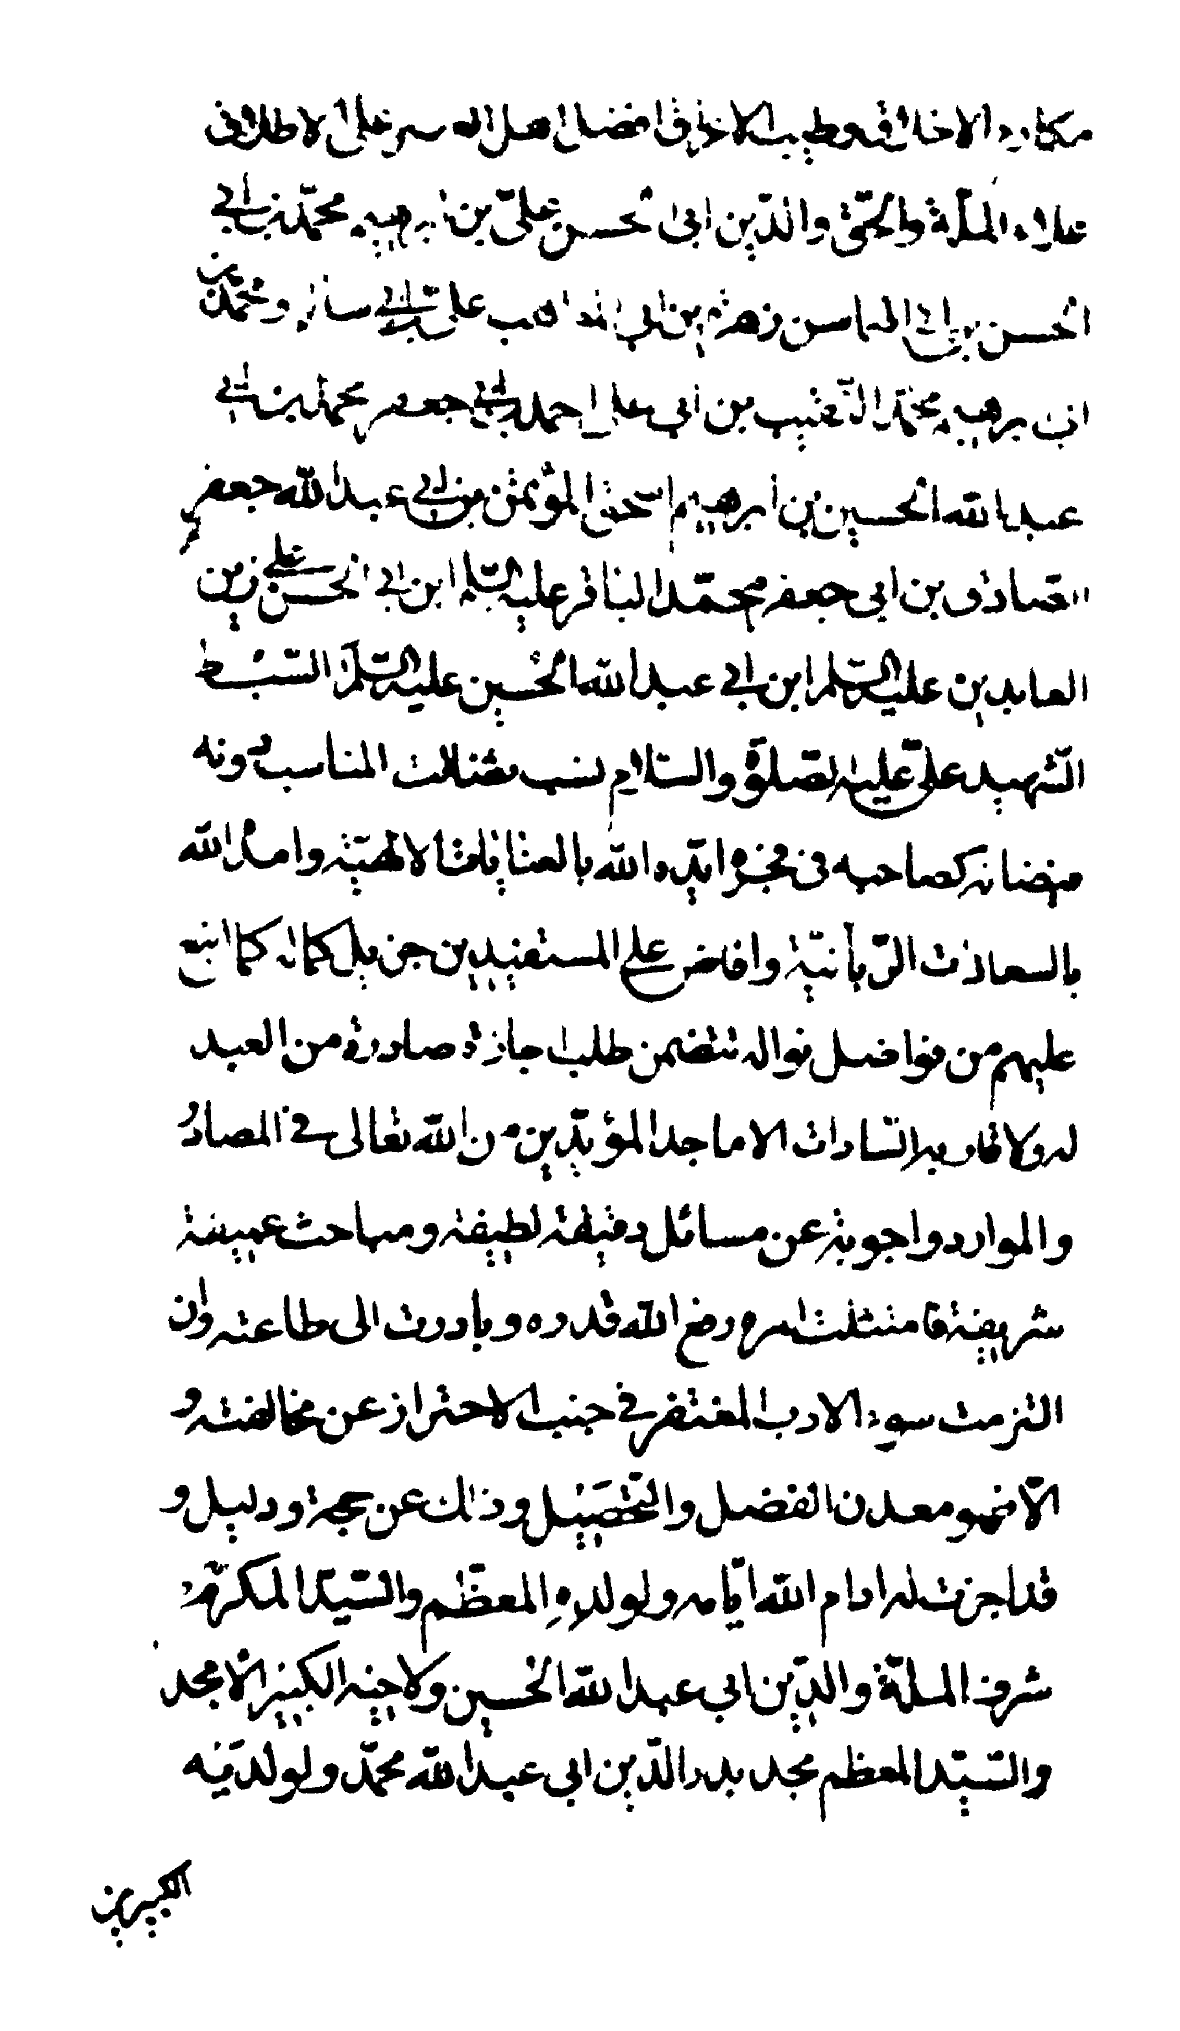 مكارم الاخلاق وطيب الاعراق افضل اهل العصر على الاطلاق
علاء الملة والحق والدين ابى الحسن علىّ بن ابرهيم محمد بن ابي
الحسن بن ابي المحاسن زهرة بن ابى المواهب على بن ابي سالم محمد بن
ابى ابرهيم محمد النقيب بن ابي على احمد بن ابي جعفر محمد بن ابي
عبدالله الحسين بن ابرهيم اسحق المؤتمن بن ابي عبدالله جعفر
الصادق بن ابي جعفر محمّد الباقر عليه السلم ابن ابي الحسن على زين
العابدين عليه السلم ابن ابي عبدالله الحسين عليه السلم السبط
الشهيد علىّ عليه الصلوة والسلام نسب تضائلت المناسب دونه
فضائه كصاحبه فى فجره ايّده الله بالعنايات الالهيّة وامدّه الله
بالسعادات الربانيّة وافاض على المستفيدين جزيل كماله كما اسبغ
عليهم من فواضل نواله تتضمن طلب اجازة صادرة من العبد
له ولاقاربه السادات الاماجد المؤيّدين من الله تعالى في المصادر
والموارد واجوبة عن مسائل دقيقة لطيفة ومباحث عميقة
شريفة فامتثلت امره رفع الله قدره وبادرت الى طاعته وان
التزمت سوء الادب المغتفر في جنب الاحتراز عن مخالفته و
الّا فهو معدن الفضل والتحصيل وذلك عن حجة ودليل و
قد اجزت له ادام الله ايّامه ولولده المعظّم والسيّد المكرّم
شرف الملّة والدّين ابي عبدالله الحسين ولاخيه الكبير الامجد
والسّيّد المعظم مجد بدرالدّين ابى عبدالله محمّد ولولديه
الكبيرين